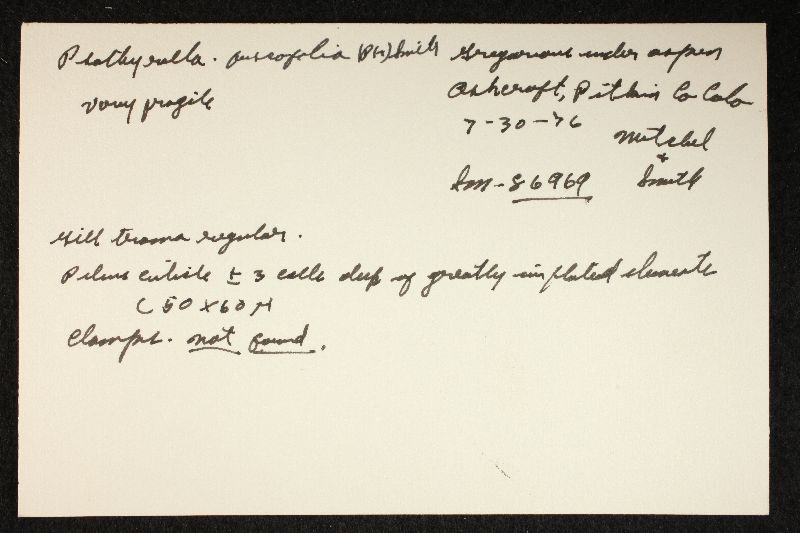 Psathyrella. fuscofolia (Pk) Smith
very fragile
Gregarious under aspen
Ashcroft, Pitkin Co Colo
7-30-76
Mitchel
+
Smith
Sm-86969
Gill trama regular.
Pileus cuticle ± 3 cells deep of greatly inflated elements
( 50 x 60 μ
Clamps. not found.